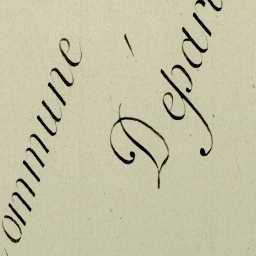 ommune
Dépar